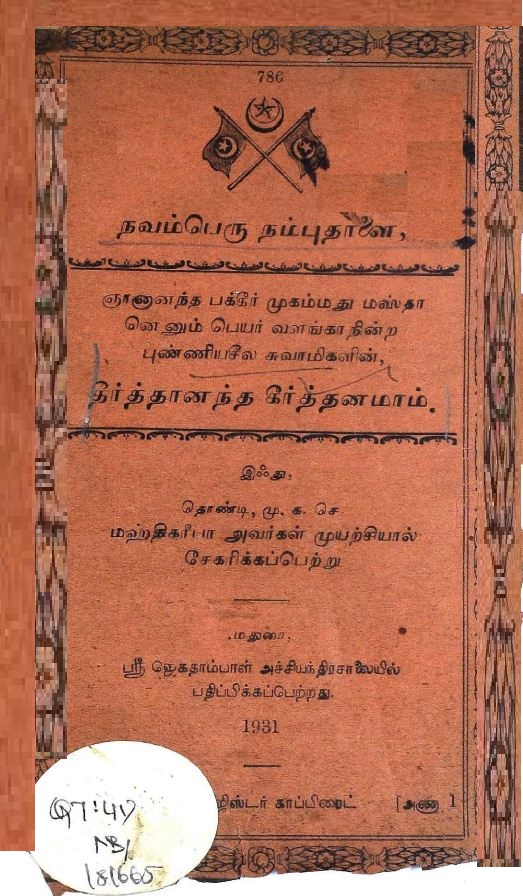 786
நவம்பெரு நம்புதாளை,
ஞானானந்த பக்கீர் முகம்மது மஸ்தா
னெனும் பெயர் வளங்காநின்ற
புண்ணியசீல சுவாமிகளின்,
கீர்த்தானந்த கீர்த்தனமாம்.
இஃது,
தொண்டி, மு. க. செ
மஹதிகரீபா அவர்கள் முயற்சியால்
சேகரிக்கப்பெற்று
மதுரை,
ஸ்ரீ ஜெகதாம்பாள் அச்சியந்திரசாலையில்
பதிப்பிக்கப்பெற்றது.
1931
ஜிஸ்டர் காப்பிரைட் [அணா 1
NB/
181665